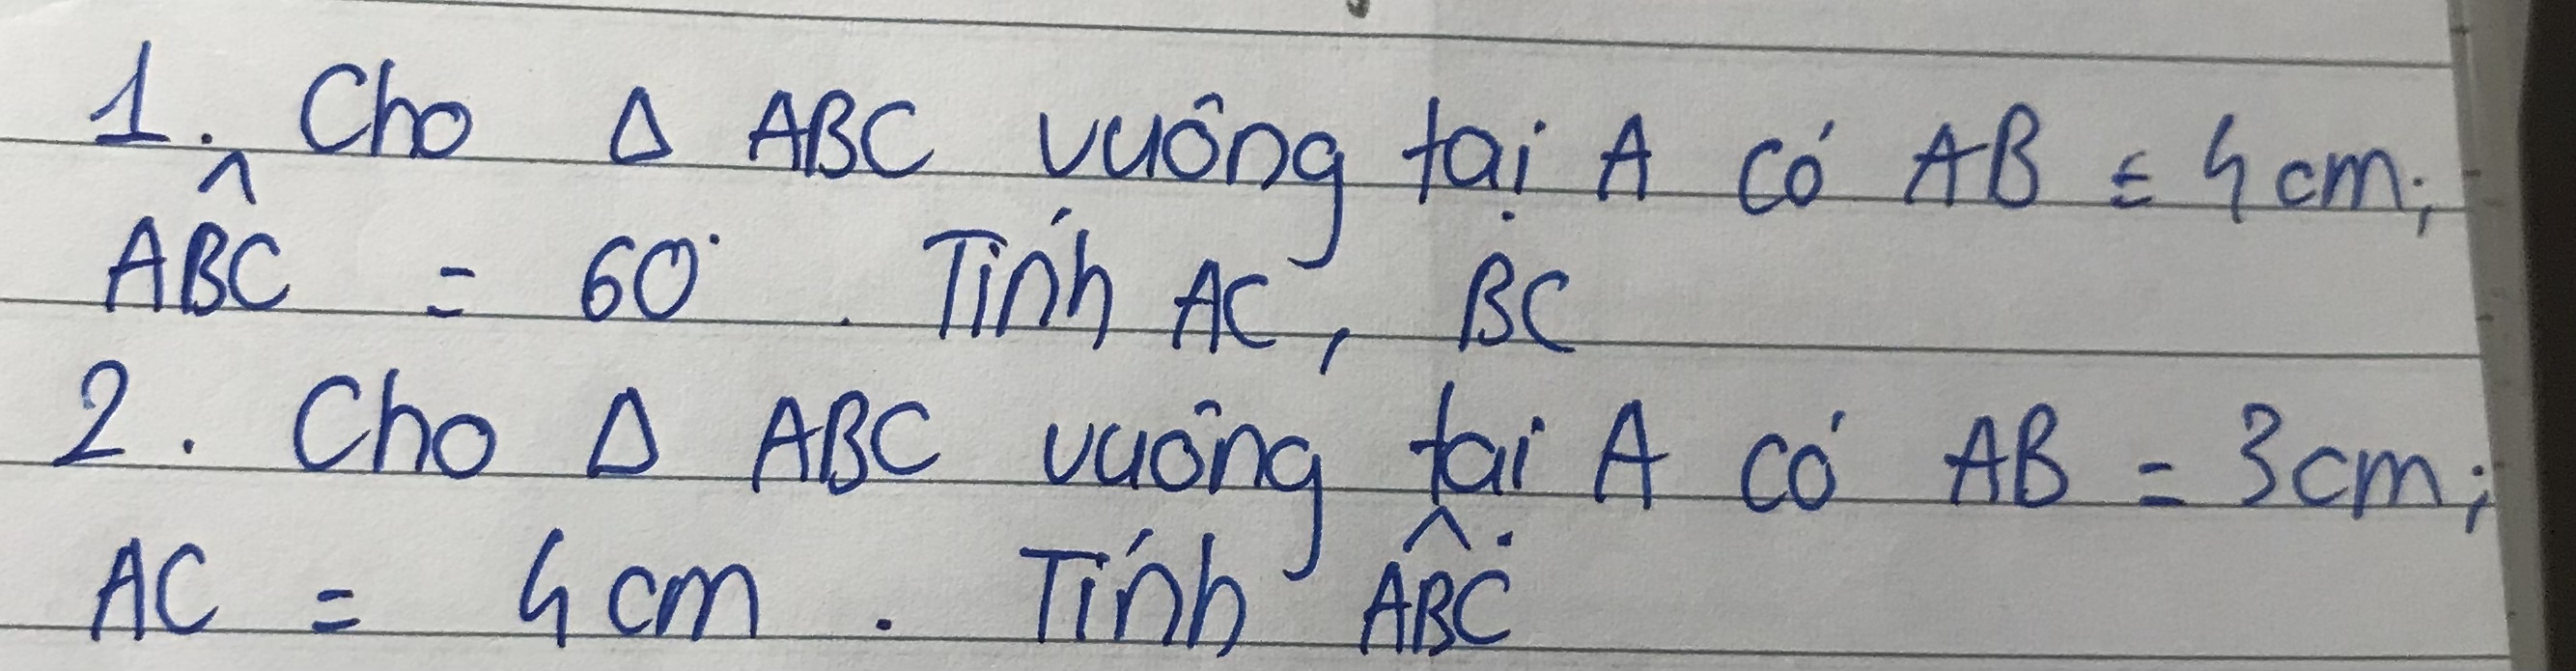 1. Cho Δ ABC vuông tại A có AB = 4 cm;
ABC̑ = 60°. Tính AC, BC
2. Cho Δ ABC vuông tại A có AB = 3cm;
AC = 4 cm. Tính ABC̑